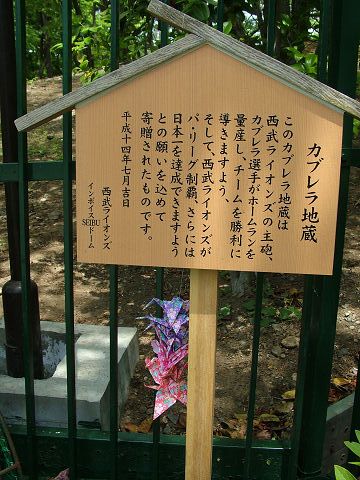 カブレラ地蔵
このカブレラ地蔵は
西武ライオンズの主砲、
カブレラ選手がホームランを
量産し、チームを勝利に
導きますよう、
そして、西武ライオンズが
パ・リーグ制覇、さらには
日本一を達成できますよう
との願いを込めて
寄贈されたものです。
平成十四年七月吉日
西武ライオンズ
インボイスSEIBUドーム